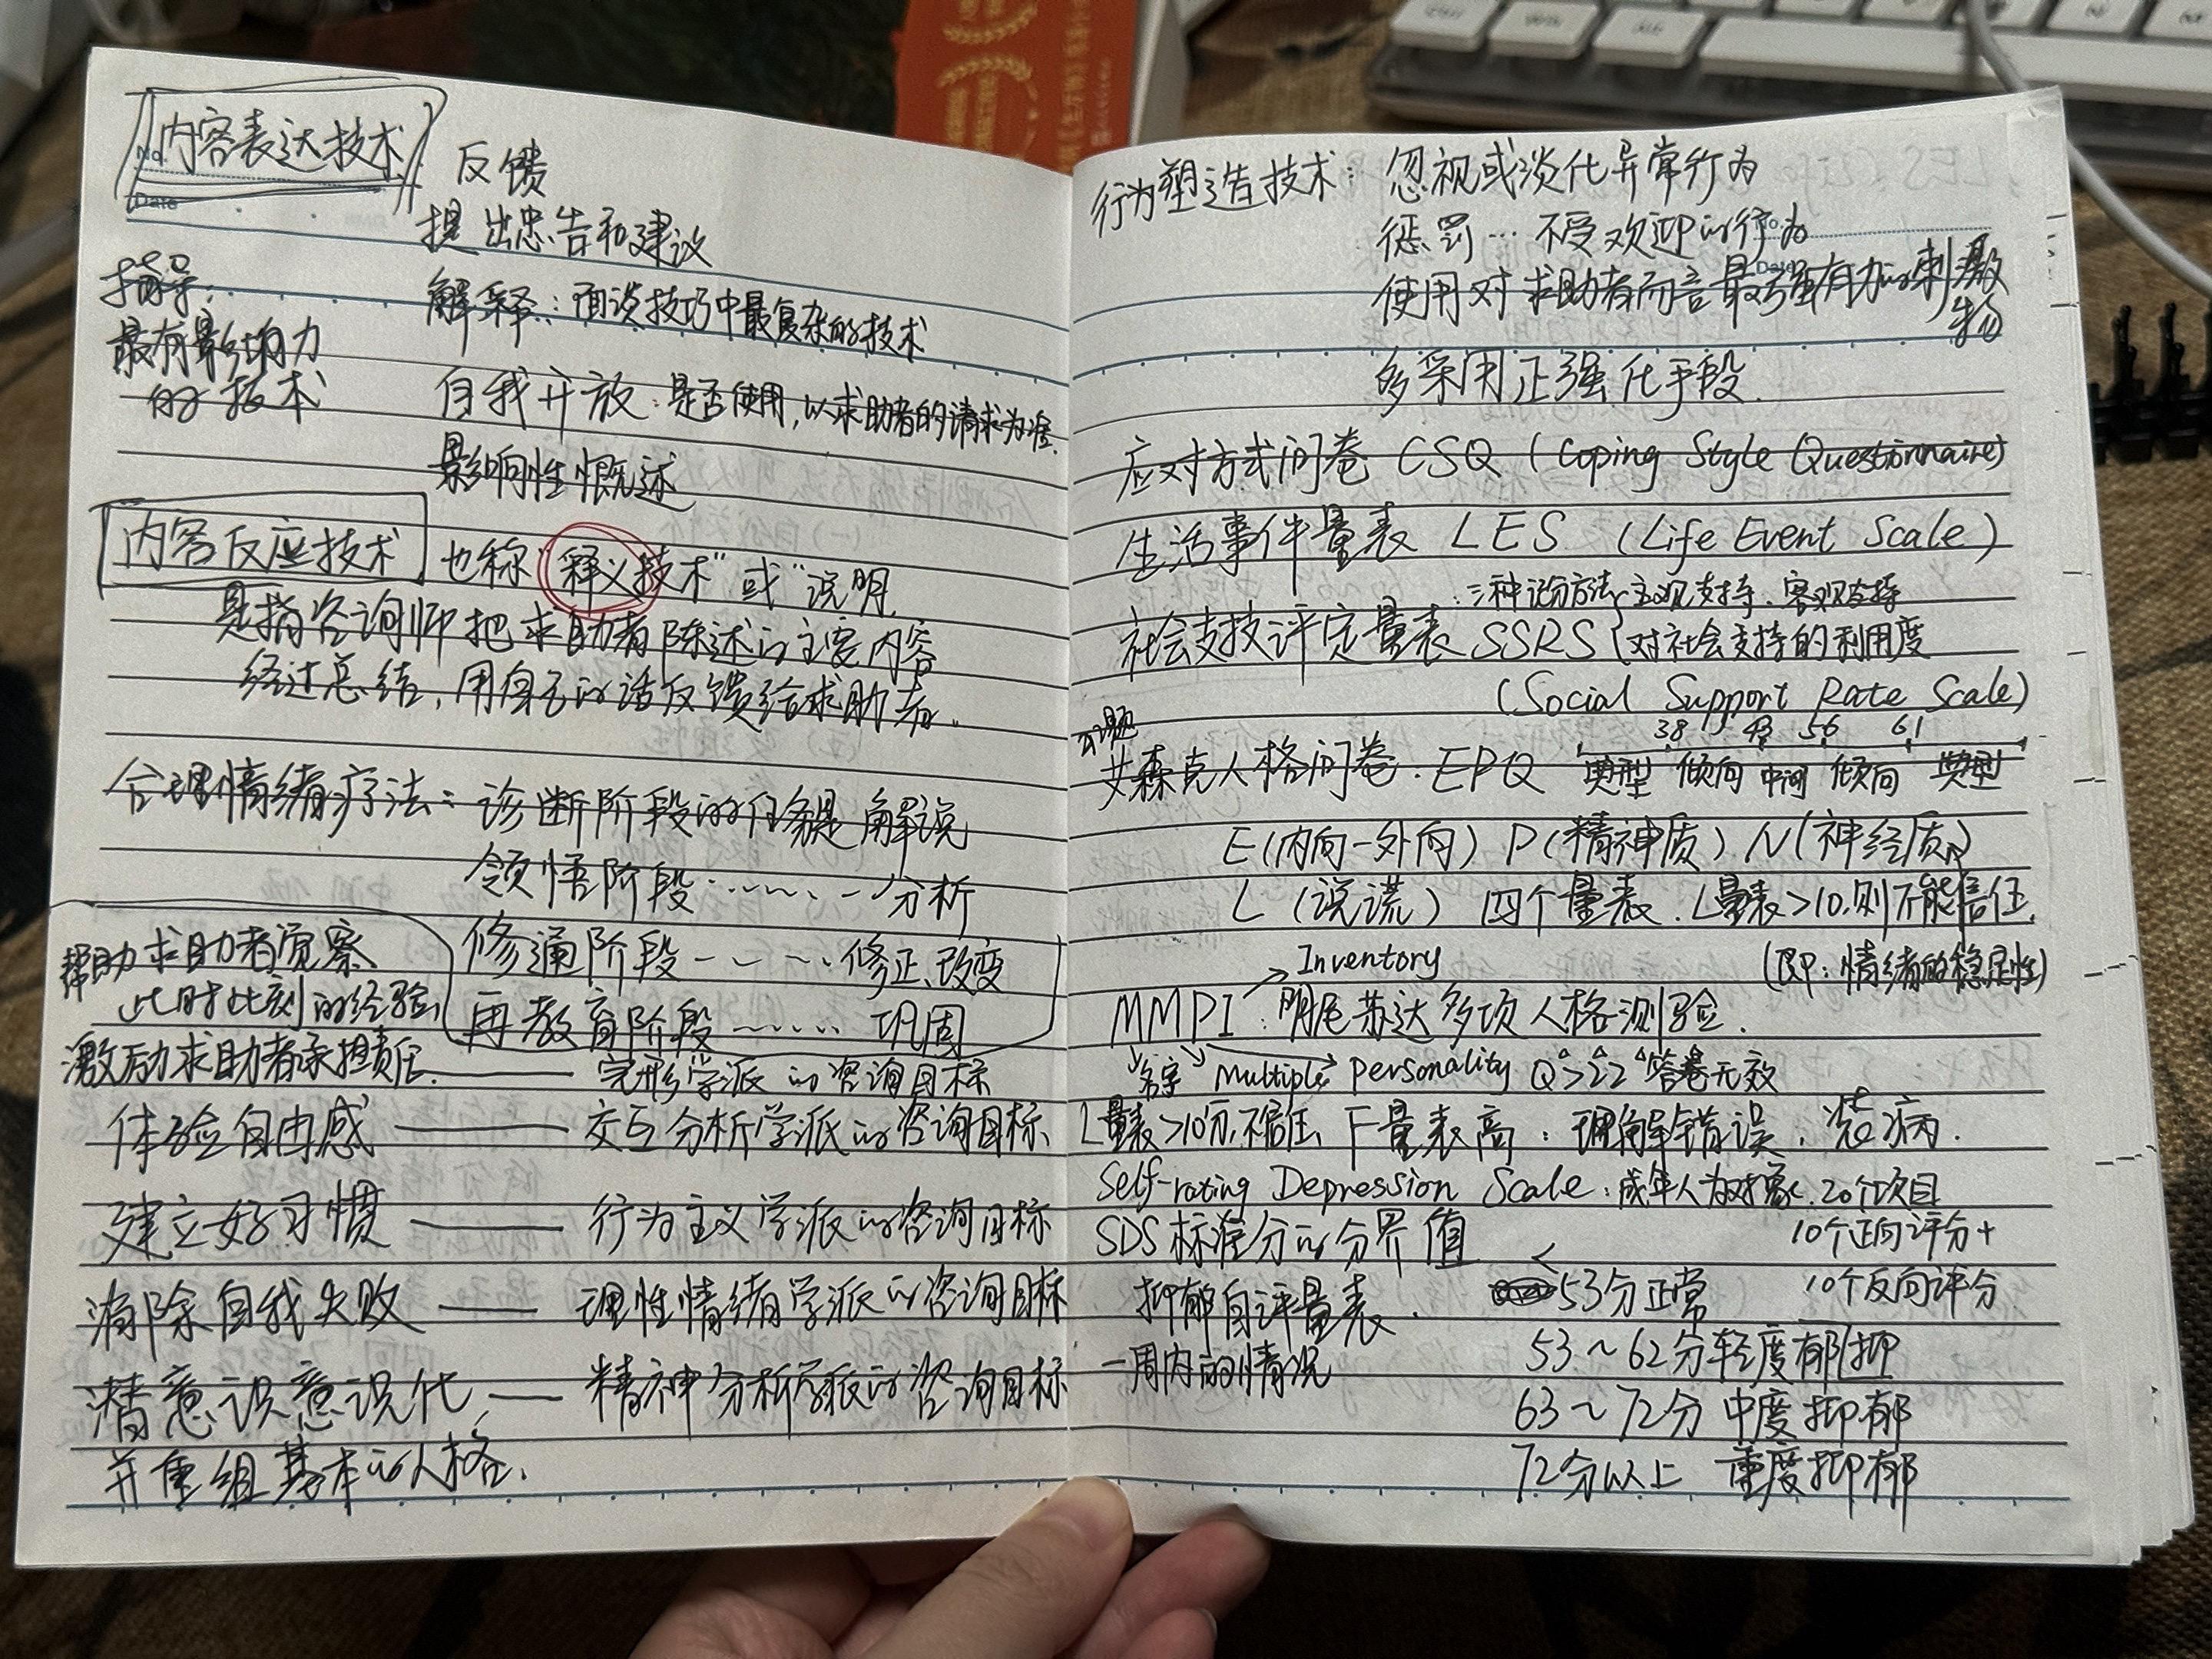 内容表达技术
反馈
提出忠告和建议
指导:
最有影响力
的技术
解释:面谈技巧中最复杂的技术
自我开放:是否使用,以求助者的请求为准.
影响性概述
内容反应技术 也称“释义技术”或“说明
是指咨询师把求助者陈述的主要内容
经过总结,用自己的话反馈给求助者。
合理情绪疗法:诊断阶段的任务是解说
领悟阶段……分析
修通阶段……修正、改变
再教育阶段……巩固
帮助求助者觉察
此时此刻的经验,
激励求助者承担责任.——完形学派的咨询目标
体验自由感——交互分析学派的咨询目标
建立好习惯——行为主义学派的咨询目标
消除自我失败——理性情绪学派的咨询目标
潜意识意识化,——精神分析学派的咨询目标
并重组基本的人格.
行为塑造技术:忽视或淡化异常行为
惩罚…不受欢迎的行为
使用对求助者而言最强有力的刺激
物
多采用正强化手段.
应对方式问卷 CSQ (Coping Style Questionnaire)
生活事件量表 LES (Life Event Scale)
:三种评分方法 主观支持、客观支持
社会支持评定量表 SSRS 对社会支持的利用度
(Social Support Rate Scale)
38 43 56 61
艾森克人格问卷.EPQ 典型 倾向 中间 倾向 典型
E(内向-外向) P(精神质) N(神经质)
L (说谎) 四个量表.L量表>10.则不能信任.
Inventory (即:情绪的稳定性)
MMPI:明尼苏达多项人格测验.
名字 Multiple personality Q>22 答卷无效
L量表>10分,不信任 F量表高:理解错误、装病.
Self-rating Depression Scale:成年人为对象.20个项目
SDS标准分的分界值 10个正向评分+
抑郁自评量表. <53分正常 10个反向评分
一周内的情况 53~62分轻度郁抑
63~72分 中度抑郁
72分以上 重度抑郁